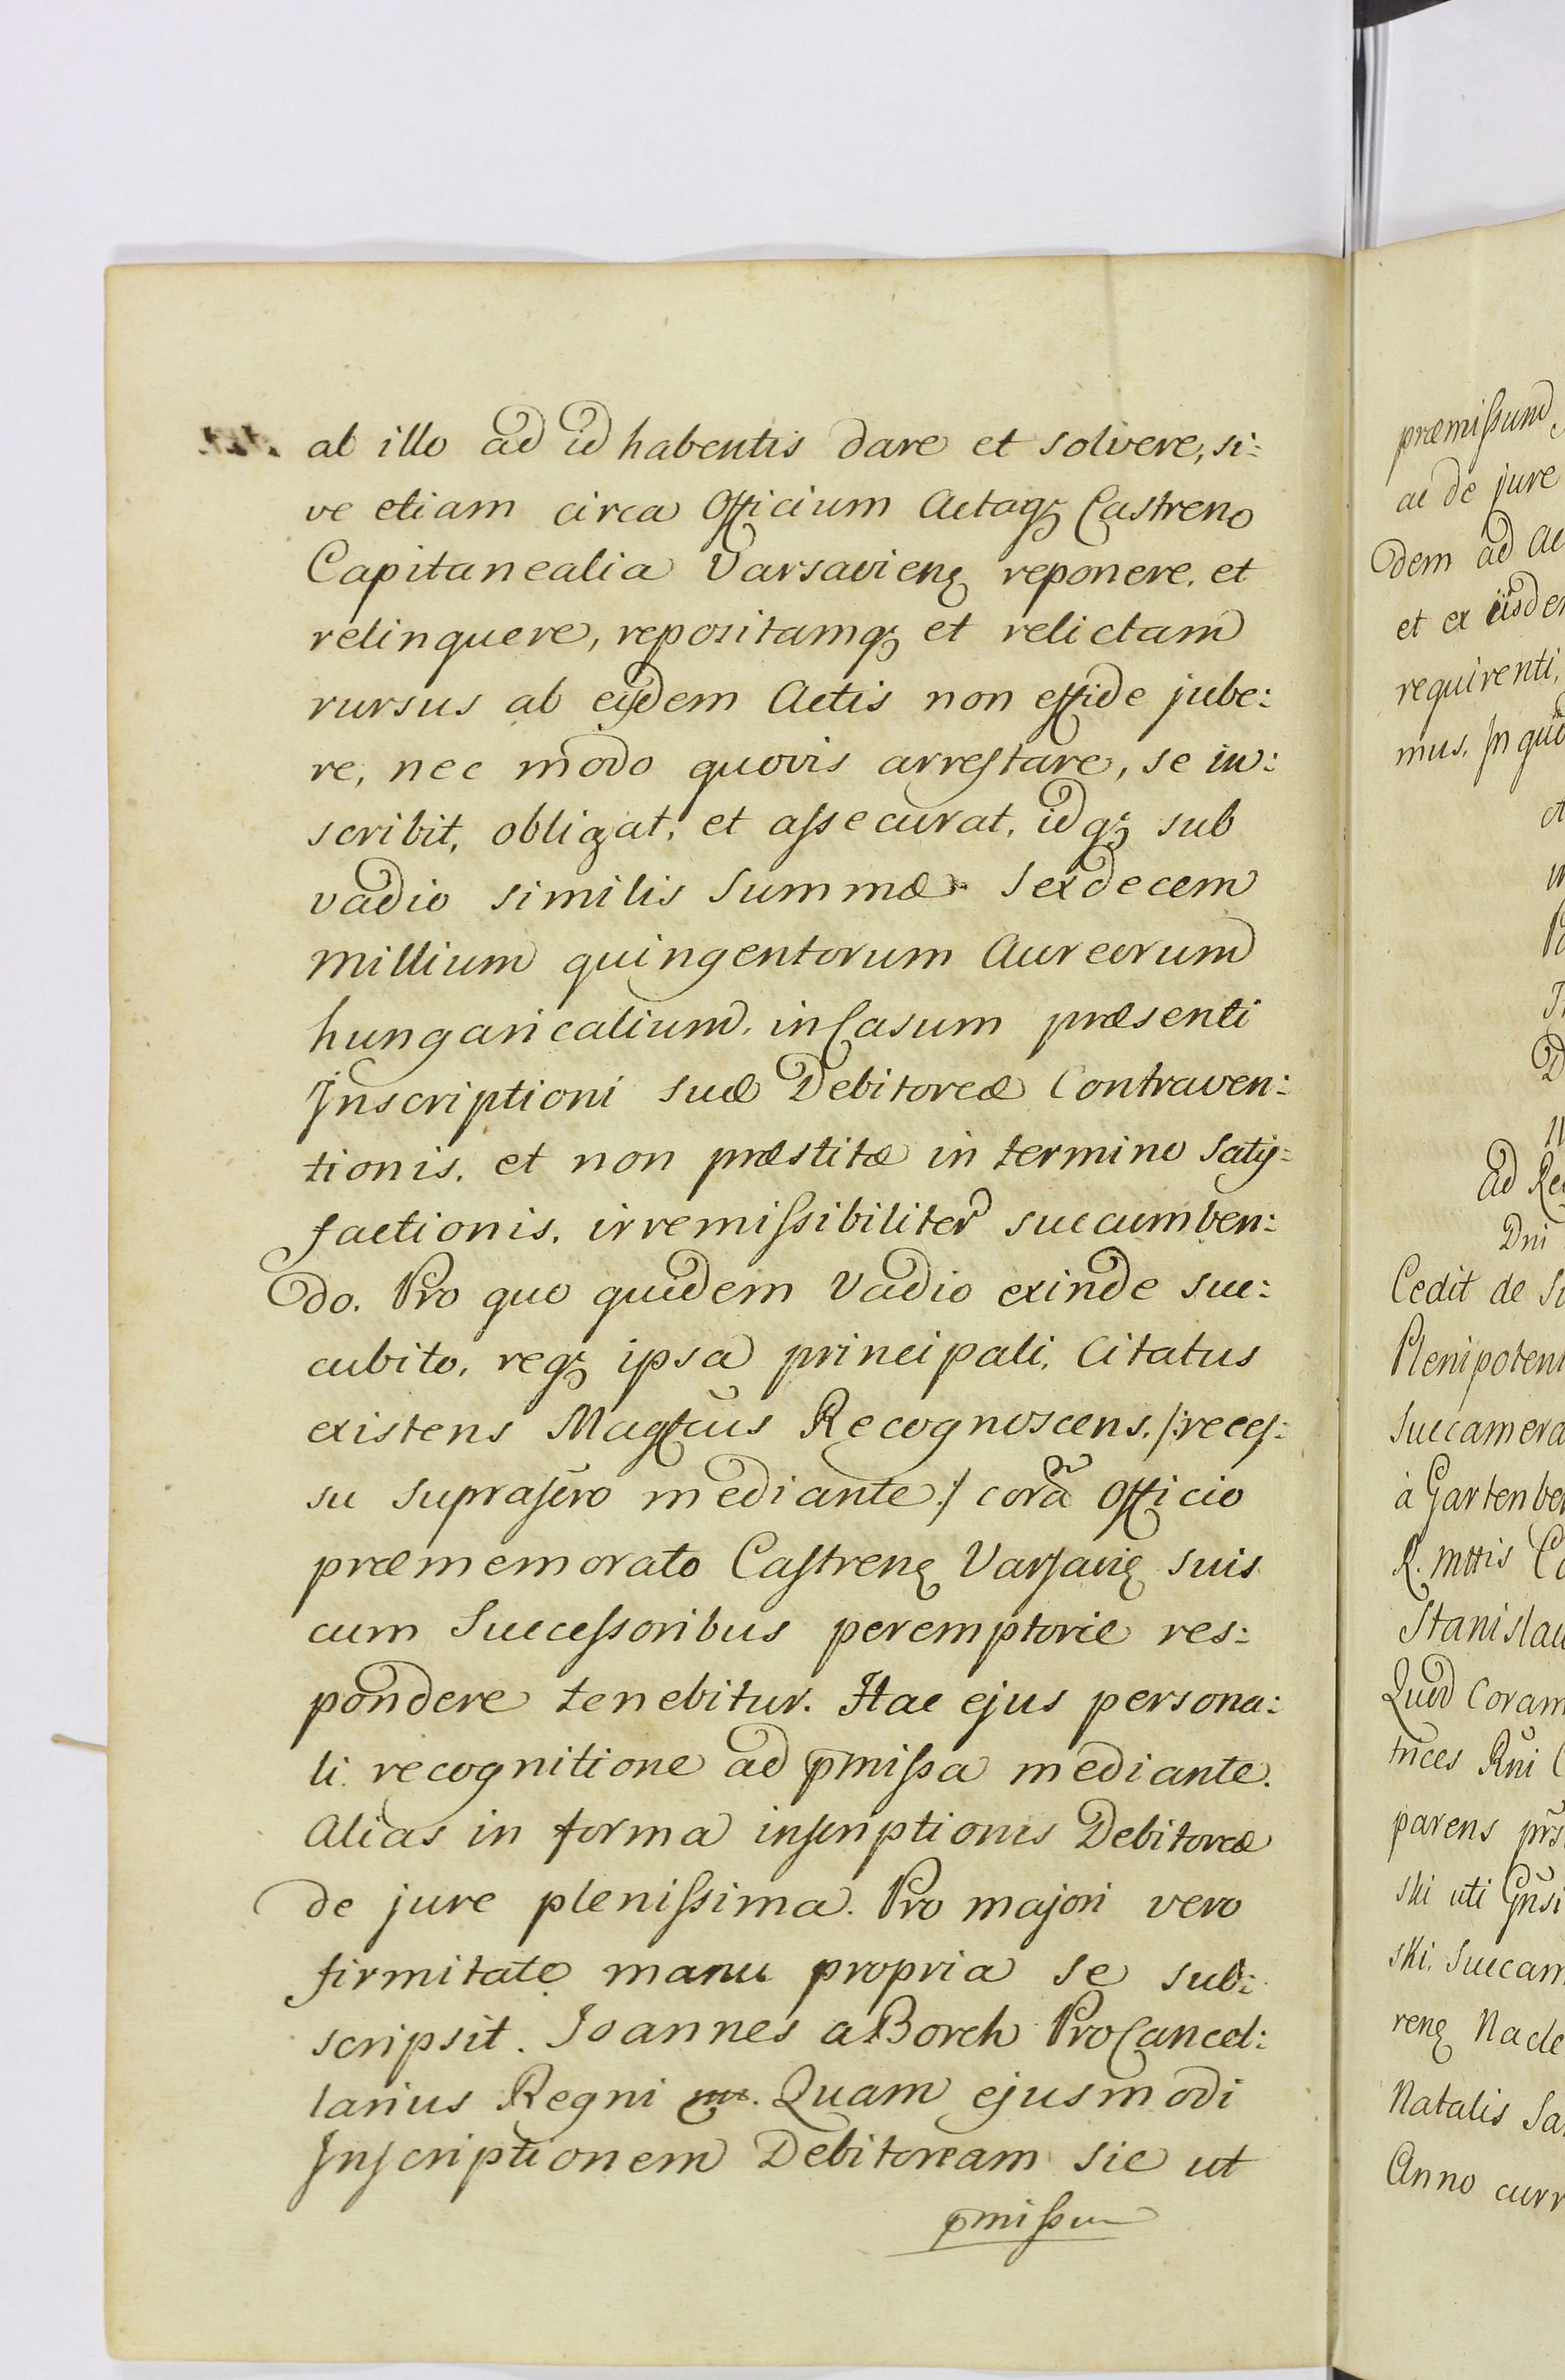 ab illo ad id habentis dare et solvere, si:
ve etiam circa Officium Actaq3 Castreno
Capitanealia Varsavieng reponere, et
relinquere, repositamq3 et relictam
rursus ab eisdem Actis non effide jube:
re, nec modo quovis arrestare, se in:
scribit, obligat, et assecurat, idq3 sub
vadio similis Summæ Sexdecem
millium quingentorum Aureorum
hungaricalium, in Casum præsenti
Inscriptioni suæ Debitoreæ Contraven:
tionis, et non præstitæ in termino Satis:
factionis, irremissibiliter succumben:
do. Pro quo quidem Vadio exinde suc:
cubito, req3 ipsa principali, Citatus
existens Recognoscens, /:reces:
su mediante:/ corã Officio
præmemorato Castreng Varsavię suis
cum Successoribus peremptorie res:
pondere tenebitur. Hac ejus persona:
li recognitione ad p̄missa mediante.
Alias in forma inscriptionis Debitoreæ
de jure plenissima. Pro majori vero
firmitate manu propria se sub:
scripsit. Joannes a Borch ProCancel:
larius Regni mr. Quam ejusmodi
Inscriptionem Debitoream sic ut
p̄missum
præmissum
ac de jure
dem ad Ac
et ex iisdem
requirenti,
mus. In quo
Ad Re
Dni
Cedit de S
Plenipotent
Succamera
à Gartenber
R. Mttis Co
Stanislau
Quod Coram
trices Rni C
parens prs
ski uti Gnsi
ski, Succam
reng Nacle
Natalis Sa
Anno curr